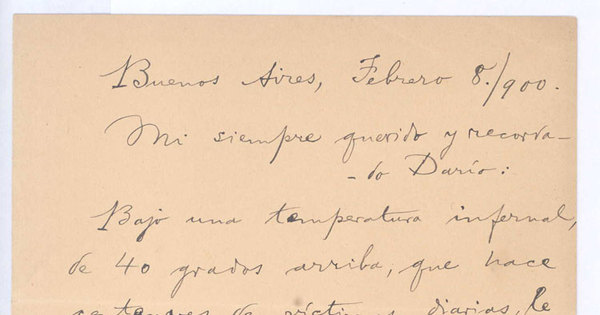 Buenos Aires, Febrero 8./900.
Mi siempre querido y recorda-
-do Darío:
Bajo una temperatura infernal,
de 40 grados arriba, que hace
centenares de víctimas diarias, le